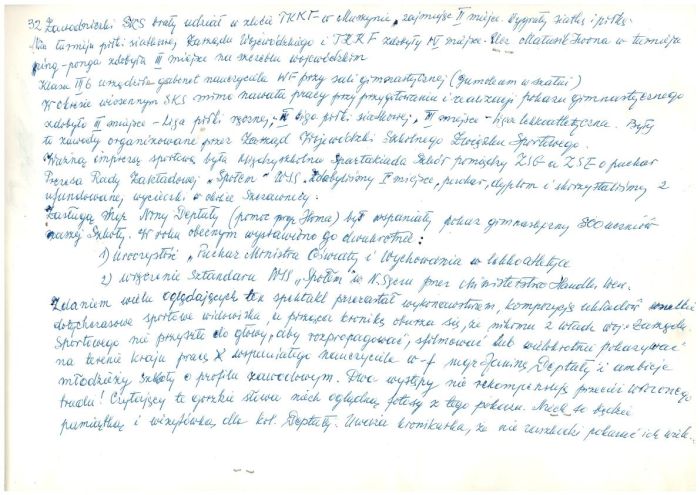 32 Zawodniczki SKS brały udział w zlocie TKKF w Muszynie, zajmując II miejsce. Wygrały siatkę i piłkę.
Na turnieju piłki siatkowej Zarządu Wojewódzkiego i TKKF zdobyły IV miejsce. Ucz. Matusik Iwona w turnieju
ping-ponga zdobyła III miejsce na szczeblu wojewódzkim
Klasa III b urządziła gabinet nauczyciela WF przy sali gimnastycznej (gumoleum w szatni)
W okresie wiosennym SKS mimo nawału pracy przy przygotowaniu i realizacji pokazu gimnastycznego
zdobyło III miejsce - Liga piłki ręcznej, II Liga piłki siatkowej, III miejsce - Liga lekkoatletyczna. Były
to zawody organizowane przez Zarząd Wojewódzki Szkolnego Związku Sportowego.
Ważną imprezą sportową była Międzyszkolna Spartakiada Szkół pomiędzy ZSG a ZSE o puchar
Prezesa Rady Zakładowej "Społem" WSS. Zdobyliśmy I miejsce, puchar, dyplom i skorzystaliśmy z
ufundowanej wycieczki w okolice Szczawnicy.
Zasługą mgr Niny Deptały (pomoc mgr Homa) był wspaniały pokaz gimnastyczny 300 uczniów
naszej Szkoły. W roku obecnym wystawiono go dwukrotnie:
1) uroczystość "Puchar Ministra Oświaty i Wychowania w lekkoatletyce
2) wręczenie Sztandaru WSS "Społem" w N. Sączu przez Ministerstwo Handlu Wew.
Zdaniem wielu oglądających ten spektakl przerastał wykonawstwem, kompozycją układów wszelkie
dotychczasowe sportowe widowiska, a pisząca kronikę oburza się, że nikomu z władz woj. Zarządu
Sportowego nie przyszło do głowy, aby rozpropagować, sfilmować lub wielokrotnie pokazywać
na terenie kraju pracę wspaniałego nauczyciela w-f mgr Janiny Deptały i ambicje
młodzieży szkoły o profilu zawodowym. Dwa występy nie rekompensują przecież włożonego
trudu! Czytający te gorzkie słowa niech oglądną fotosy z tego pokazu. Niech są będzie
pamiątką i wizytówką dla kol. Deptały. Uważa kronikarka, że nie zaszkodzi pokazać ich